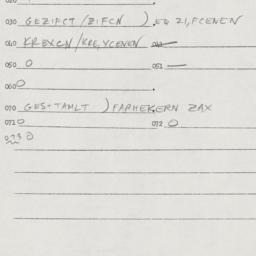 030 GEZIFCT /ZIFCN ) ,EQ ZI,FCENEN
040 KREXCN/KRE,YCENEN 041
050 0 051 —
060 0
070 GES+TAHLT ) FARHEKERN ZAX
071 0 072 0
073 0